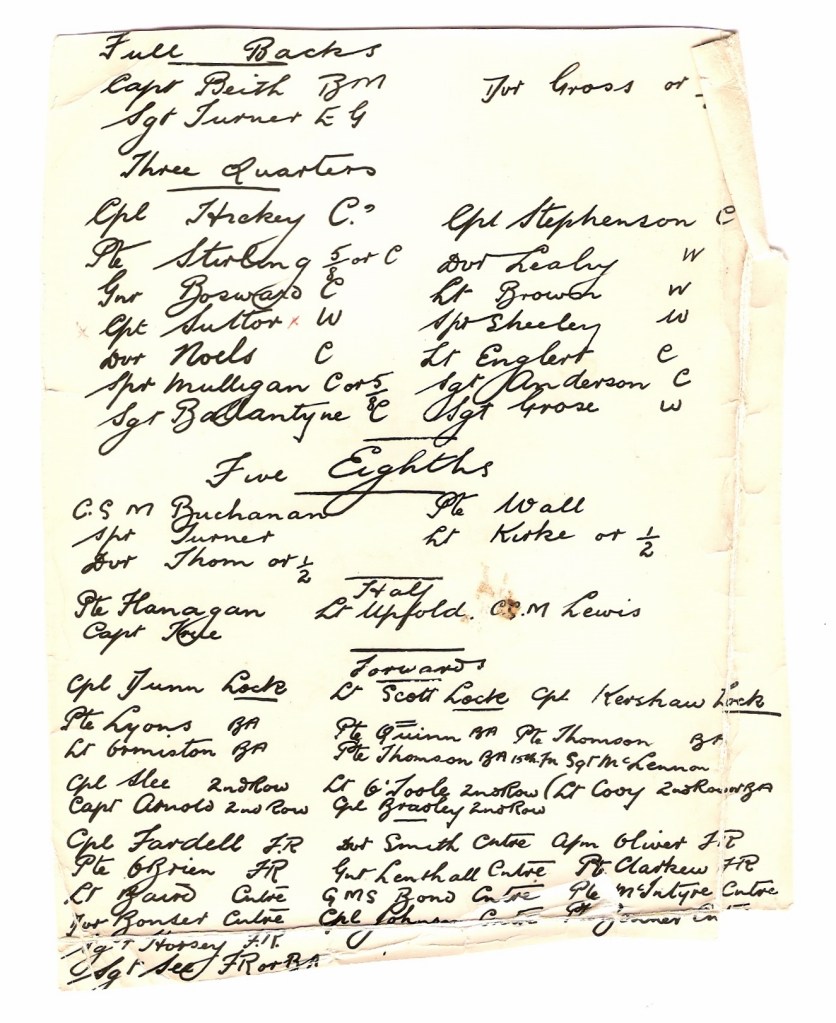 Full Backs
Capt Beith B M Dvr Gross or
Sgt Turner E G
Three Quarters
Cpl Hickey C.? Cpl Stephenson C
Pte Stirling 5/8 or C Dvr Leahy W
Gnr Bosward C Lt Brown W
x Cpt Suttor x W Spr Sheeley W
Dvr Noels C Lt Englert C
Spr Mulligan C or 5/8 Sgt Anderson C
Sgt Ballantyne C Sgt Grose W
Five Eighths
C.S M Buchanan Pte Wall
Spr Turner Lt Kirke or 1/2
Dvr Thom or 1/2
Half
Pte Flanagan Lt Upfold. C.S.M Lewis
Capt
Forwards
Cpl Dunn Lock Lt Scott Lock Cpl Kershaw Lock
Pte Lyons BA Pte Quinn BA Pte Thomson BA
Lt Ormiston BA Pte Thomson BA 15th Fn Sgt McLennon
Cpl Slee 2nd Row Lt O'Toole 2nd Row (Lt Cory 2nd Row or BA
Capt Arnold 2nd Row Cpl Bradley 2nd Row
Cpl Fardell F.R Dvr Smith Cntre Oliver FR
Pte O'Brien FR Gnr Lenthall Cntre Pt Clarkew FR
Lt Baird Cntre QMS Bond Cntre Pte McIntyre Cntre
Dvr Bonser Cntre Cpl Johnson Cntre
Sgt Horsey F.R.
Sgt See FR or BA